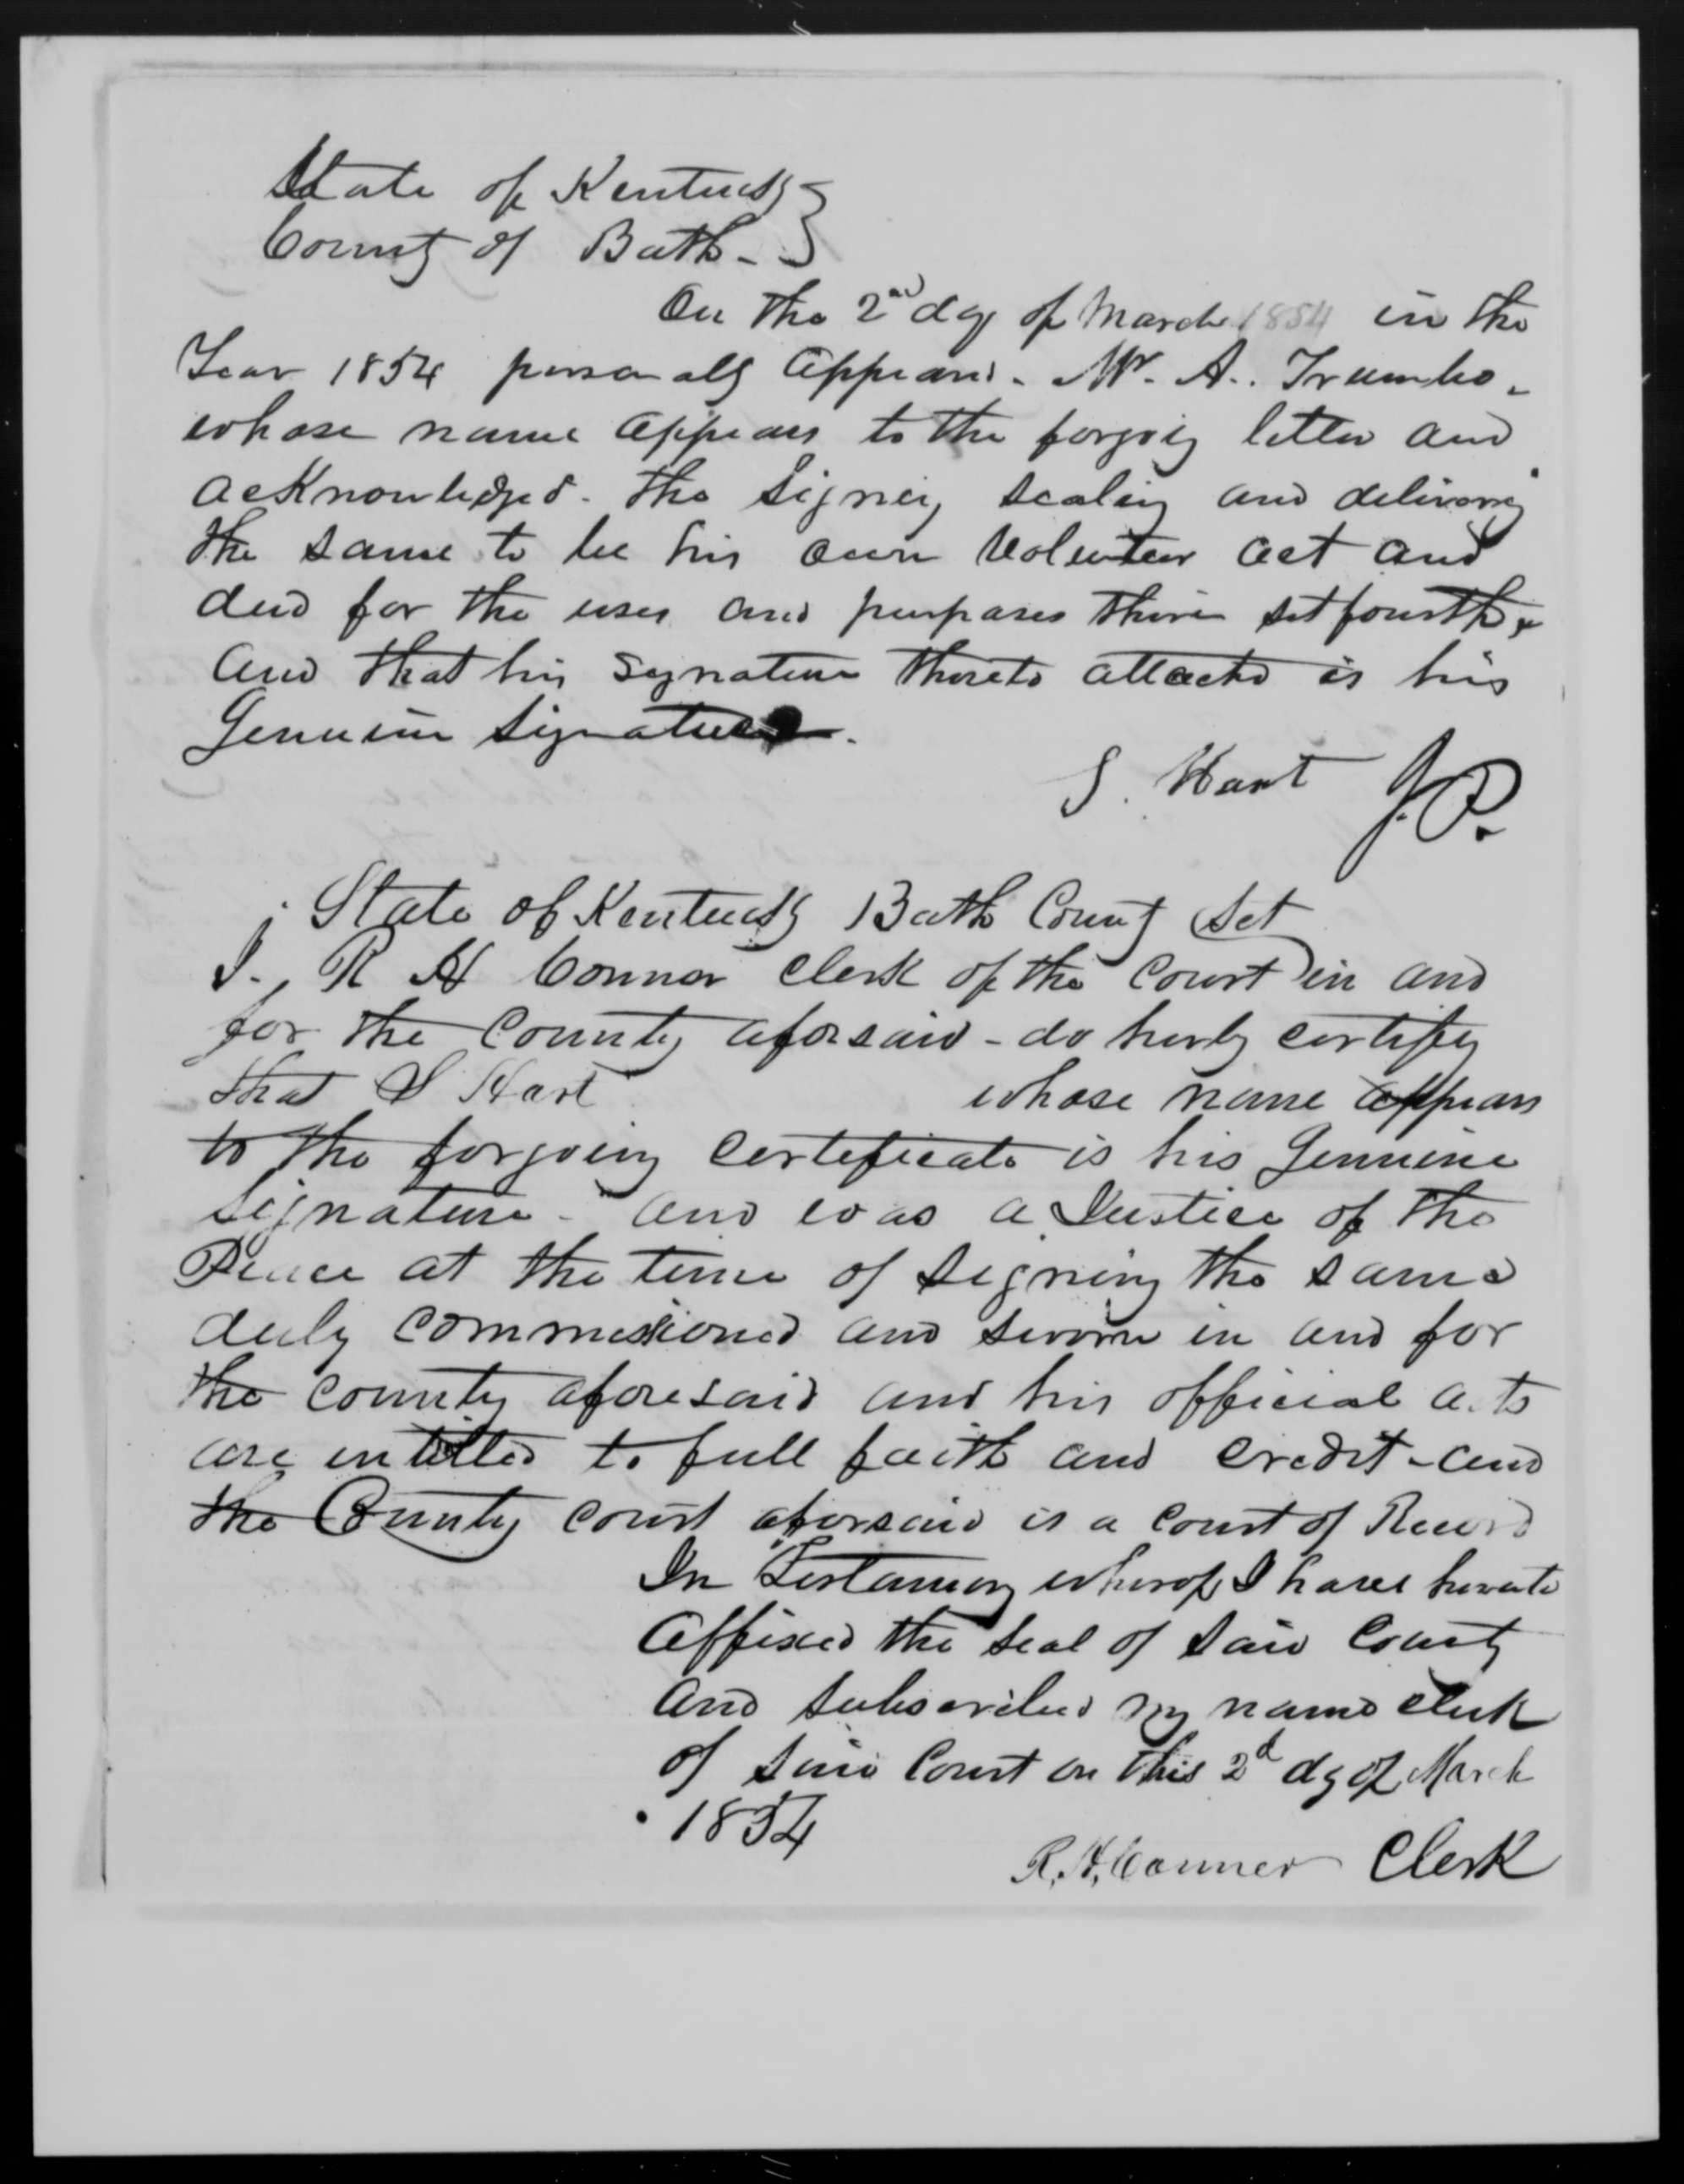 State of Kentucky }
County of Bath - }
On the 2nd day of March 1854 in the
Year 1854 personally appeared. W. A. Trumbo -
whose name appears to the forgoig letter and
acknowledged. the signeg sealing and delivering
the same to be his own volenteer act and
deed for the uses and purposes therein set fourth,
and that his signature thereto attached is his
Genuine signature.
S. Hart J.P.
State of Kentucky Bath County Sct
I., R H Connor Clerk of the Court in and
for the County aforsaid - do herby certify
that S Hart whose name appears
to the forgoing Certificate is his Genuine
signature - and was a Justice of the
Peace at the time of signing the same
duly commissioned and sworn in and for
the county aforesaid and his official acts
are entitled to full faith and credit - and
the County court aforsaid is a Court of Record
In Testamony wherof I have hereunto
affixed the seal of said County
and subscribed my name clerk
of said Court on this 2d dy of March
1854
R. H. Conner Clerk